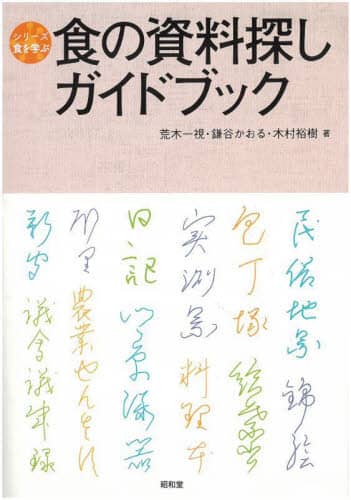 シリーズ
食を学ぶ
食の資料探し
ガイドブック
荒木一視・鎌谷かおる・木村裕樹 著
民俗地図 錦絵
包丁塚
実測図 料理本
日記 漆器
農業
新聞 議会議事録
昭和堂